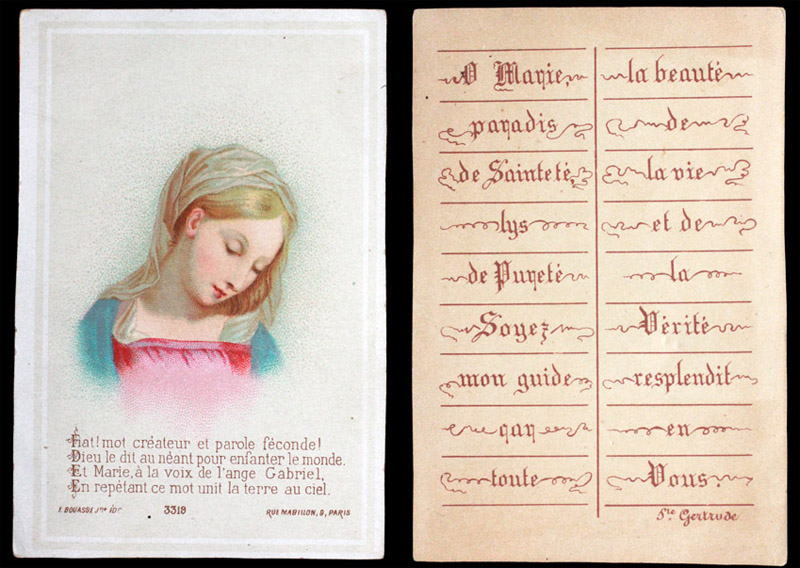 Fiat! mot créateur et parole féconde!
Dieu le dit au néant pour enfanter le monde.
Et Marie, à la voix de l'ange Gabriel,
En repétant ce mot unit la terre au ciel.
E. BOUASSE Jne édr
3319
RUE MABILLON, 9, PARIS
O Marie,
paradis
de Sainteté,
lys
de Pureté
Soyez
mon guide
qar
toute
la beauté
de
la vie
et de
la
Vérité
resplendit
en
Vous.
Ste Gertrude